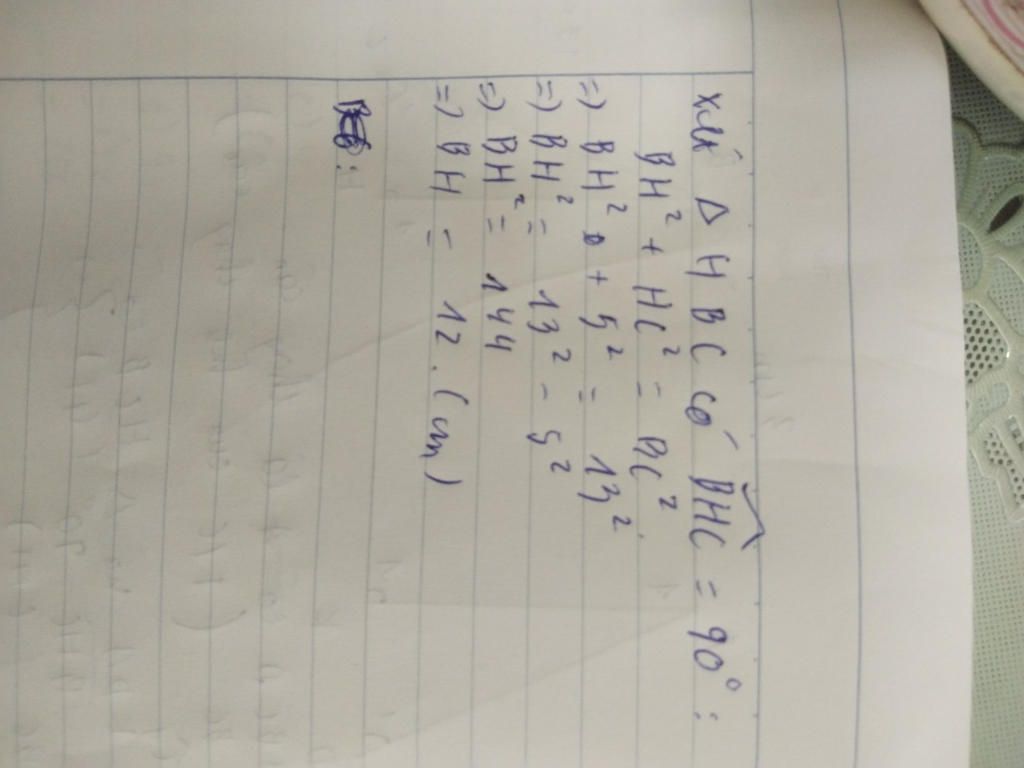 Xét Δ HBC có BHC = 90° :
BH² + HC² = BC²
=) BH² + 5² = 13²
=) BH² = 13² - 5²
=) BH² = 144
=) BH = 12. (cm)